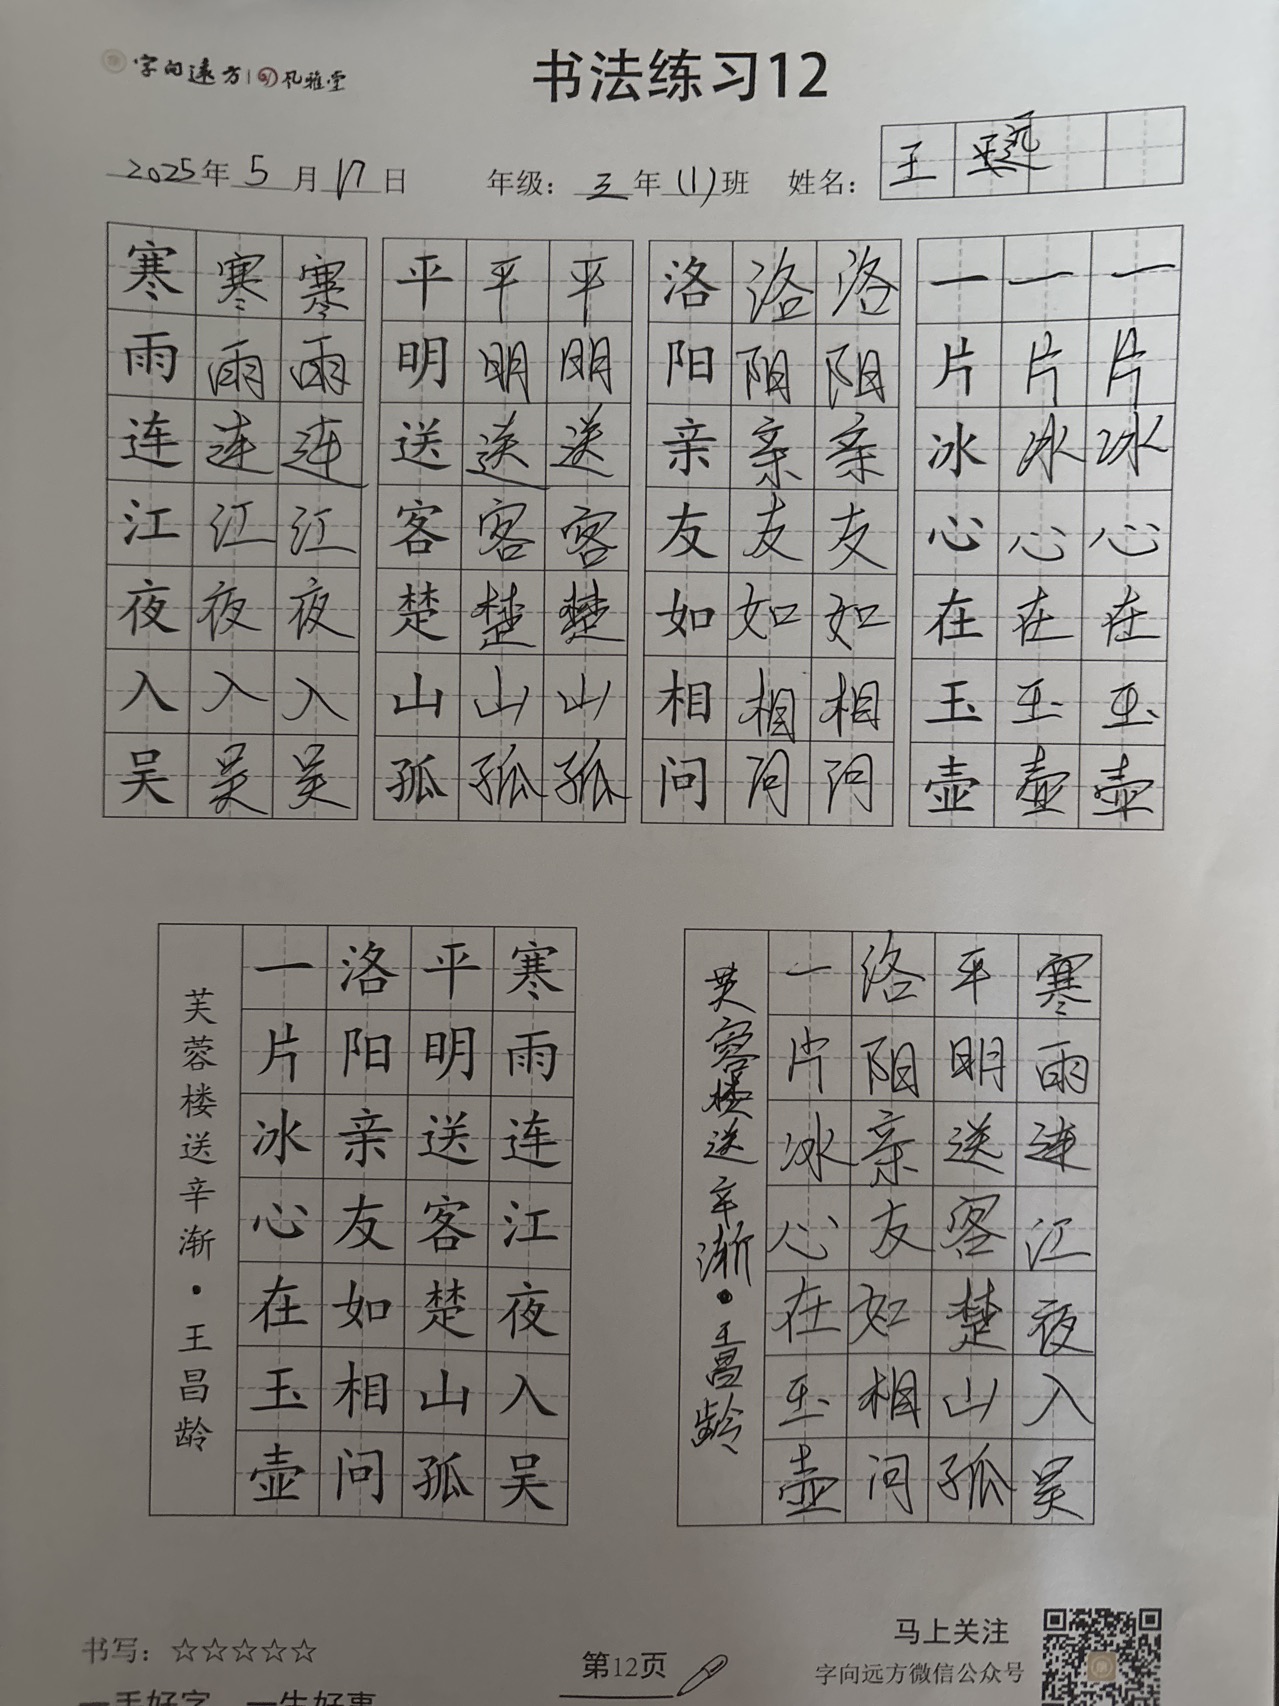 字向远方 风雅堂
书法练习12
2025年5月17日 年级：三年(1)班 姓名：王
寒寒寒 平平平 洛洛洛 一一一
雨雨雨 明明明 阳阳阳 片片片
连连连 送送送 亲亲亲 冰冰冰
江江江 客客客 友友友 心心心
夜夜夜 楚楚楚 如如如 在在在
入入入 山山山 相相相 玉玉玉
吴吴吴 孤孤孤 问问问 壶壶壶
寒雨连江夜入吴
平明送客楚山孤
洛阳亲友如相问
一片冰心在玉壶
芙蓉楼送辛渐·王昌龄
寒雨连江夜入吴
平明送客楚山孤
洛阳亲友如相问
一片冰心在玉壶
芙蓉楼送辛渐·王昌龄
书写：☆☆☆☆☆
一手好字 一生好事
第12页
马上关注
字向远方微信公众号